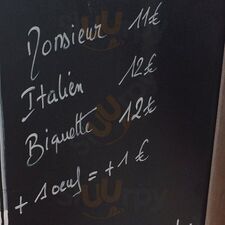 Monsieur 11€
Italien 12€
Biquette 12€
+ 1 oeuf = + 1 €